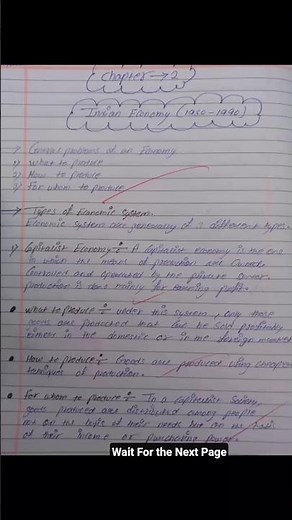 Chapter → 2
Indian Economy (1950-1990)
→ Central problems of an Economy
1) What to produce
2) How to produce
3) For whom to produce
→ Types of Economic System.
Economic system are generally of 3 different types.
1) Capitalist Economy ÷ A Capitalist economy is the one
in which the means of production are Owned,
Controlled and operated by the private Owner.
production is done mainly for earning profit.
• What to produce ÷ Under this system, only those
goods are produced that can be sold profitably
either in the domestic or in the foreign market
• How to produce ÷ Goods are produced using cheaper
techniques of production.
• For whom to produce ÷ In a Capitalist Society
goods produced are distributed among people
not on the basis of their needs but on the basis
of their income or purchasing power.
Wait For the Next Page